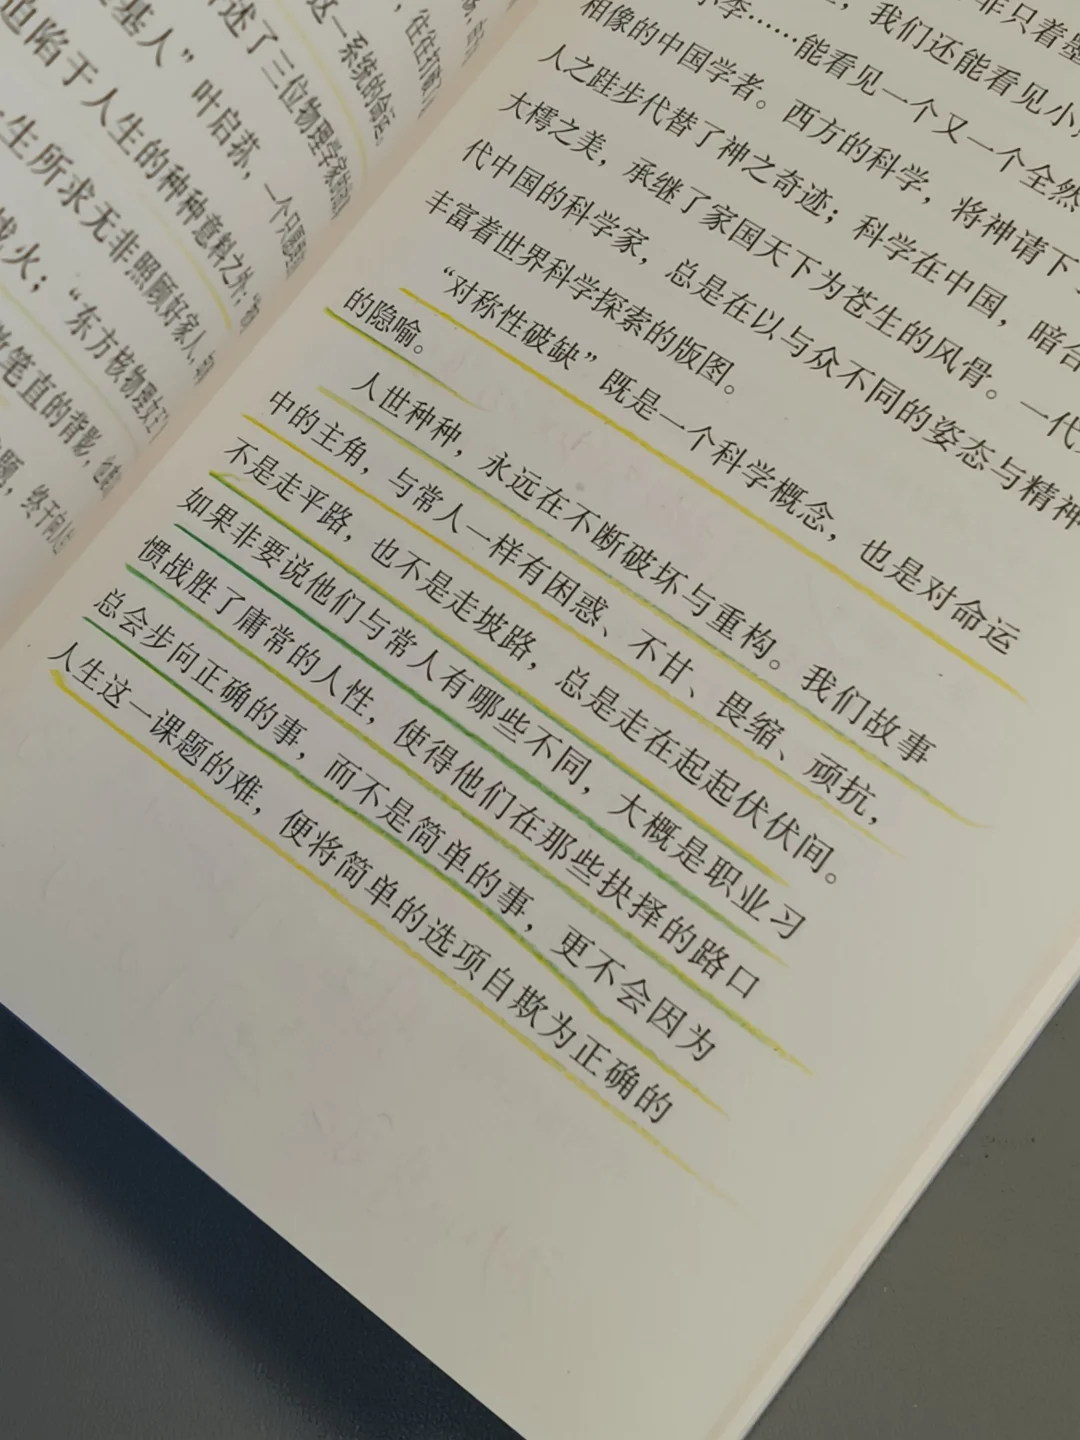 基人”叶启荪，一个只
迫陷于人生的种种意料之外；
生所求无非照顾好家人，
战火；“东方核物理女
笔直的背影，
题，终于向
述了三位物理学家
这一系统的命运。
，往往打破
非只着墨
，我们还能看见小
小李……能看见一个又一个全然
相像的中国学者。西方的科学，将神请下
人之跬步代替了神之奇迹；科学在中国，暗合
大樗之美，承继了家国天下为苍生的风骨。一代
代中国的科学家，总是在以与众不同的姿态与精神
丰富着世界科学探索的版图。
“对称性破缺”既是一个科学概念，也是对命运
的隐喻。
人世种种，永远在不断破坏与重构。我们故事
中的主角，与常人一样有困惑、不甘、畏缩、顽抗，
不是走平路，也不是走坡路，总是走在起起伏伏间。
如果非要说他们与常人有哪些不同，大概是职业习
惯战胜了庸常的人性，使得他们在那些抉择的路口
总会步向正确的事，而不是简单的事，更不会因为
人生这一课题的难，便将简单的选项自欺为正确的